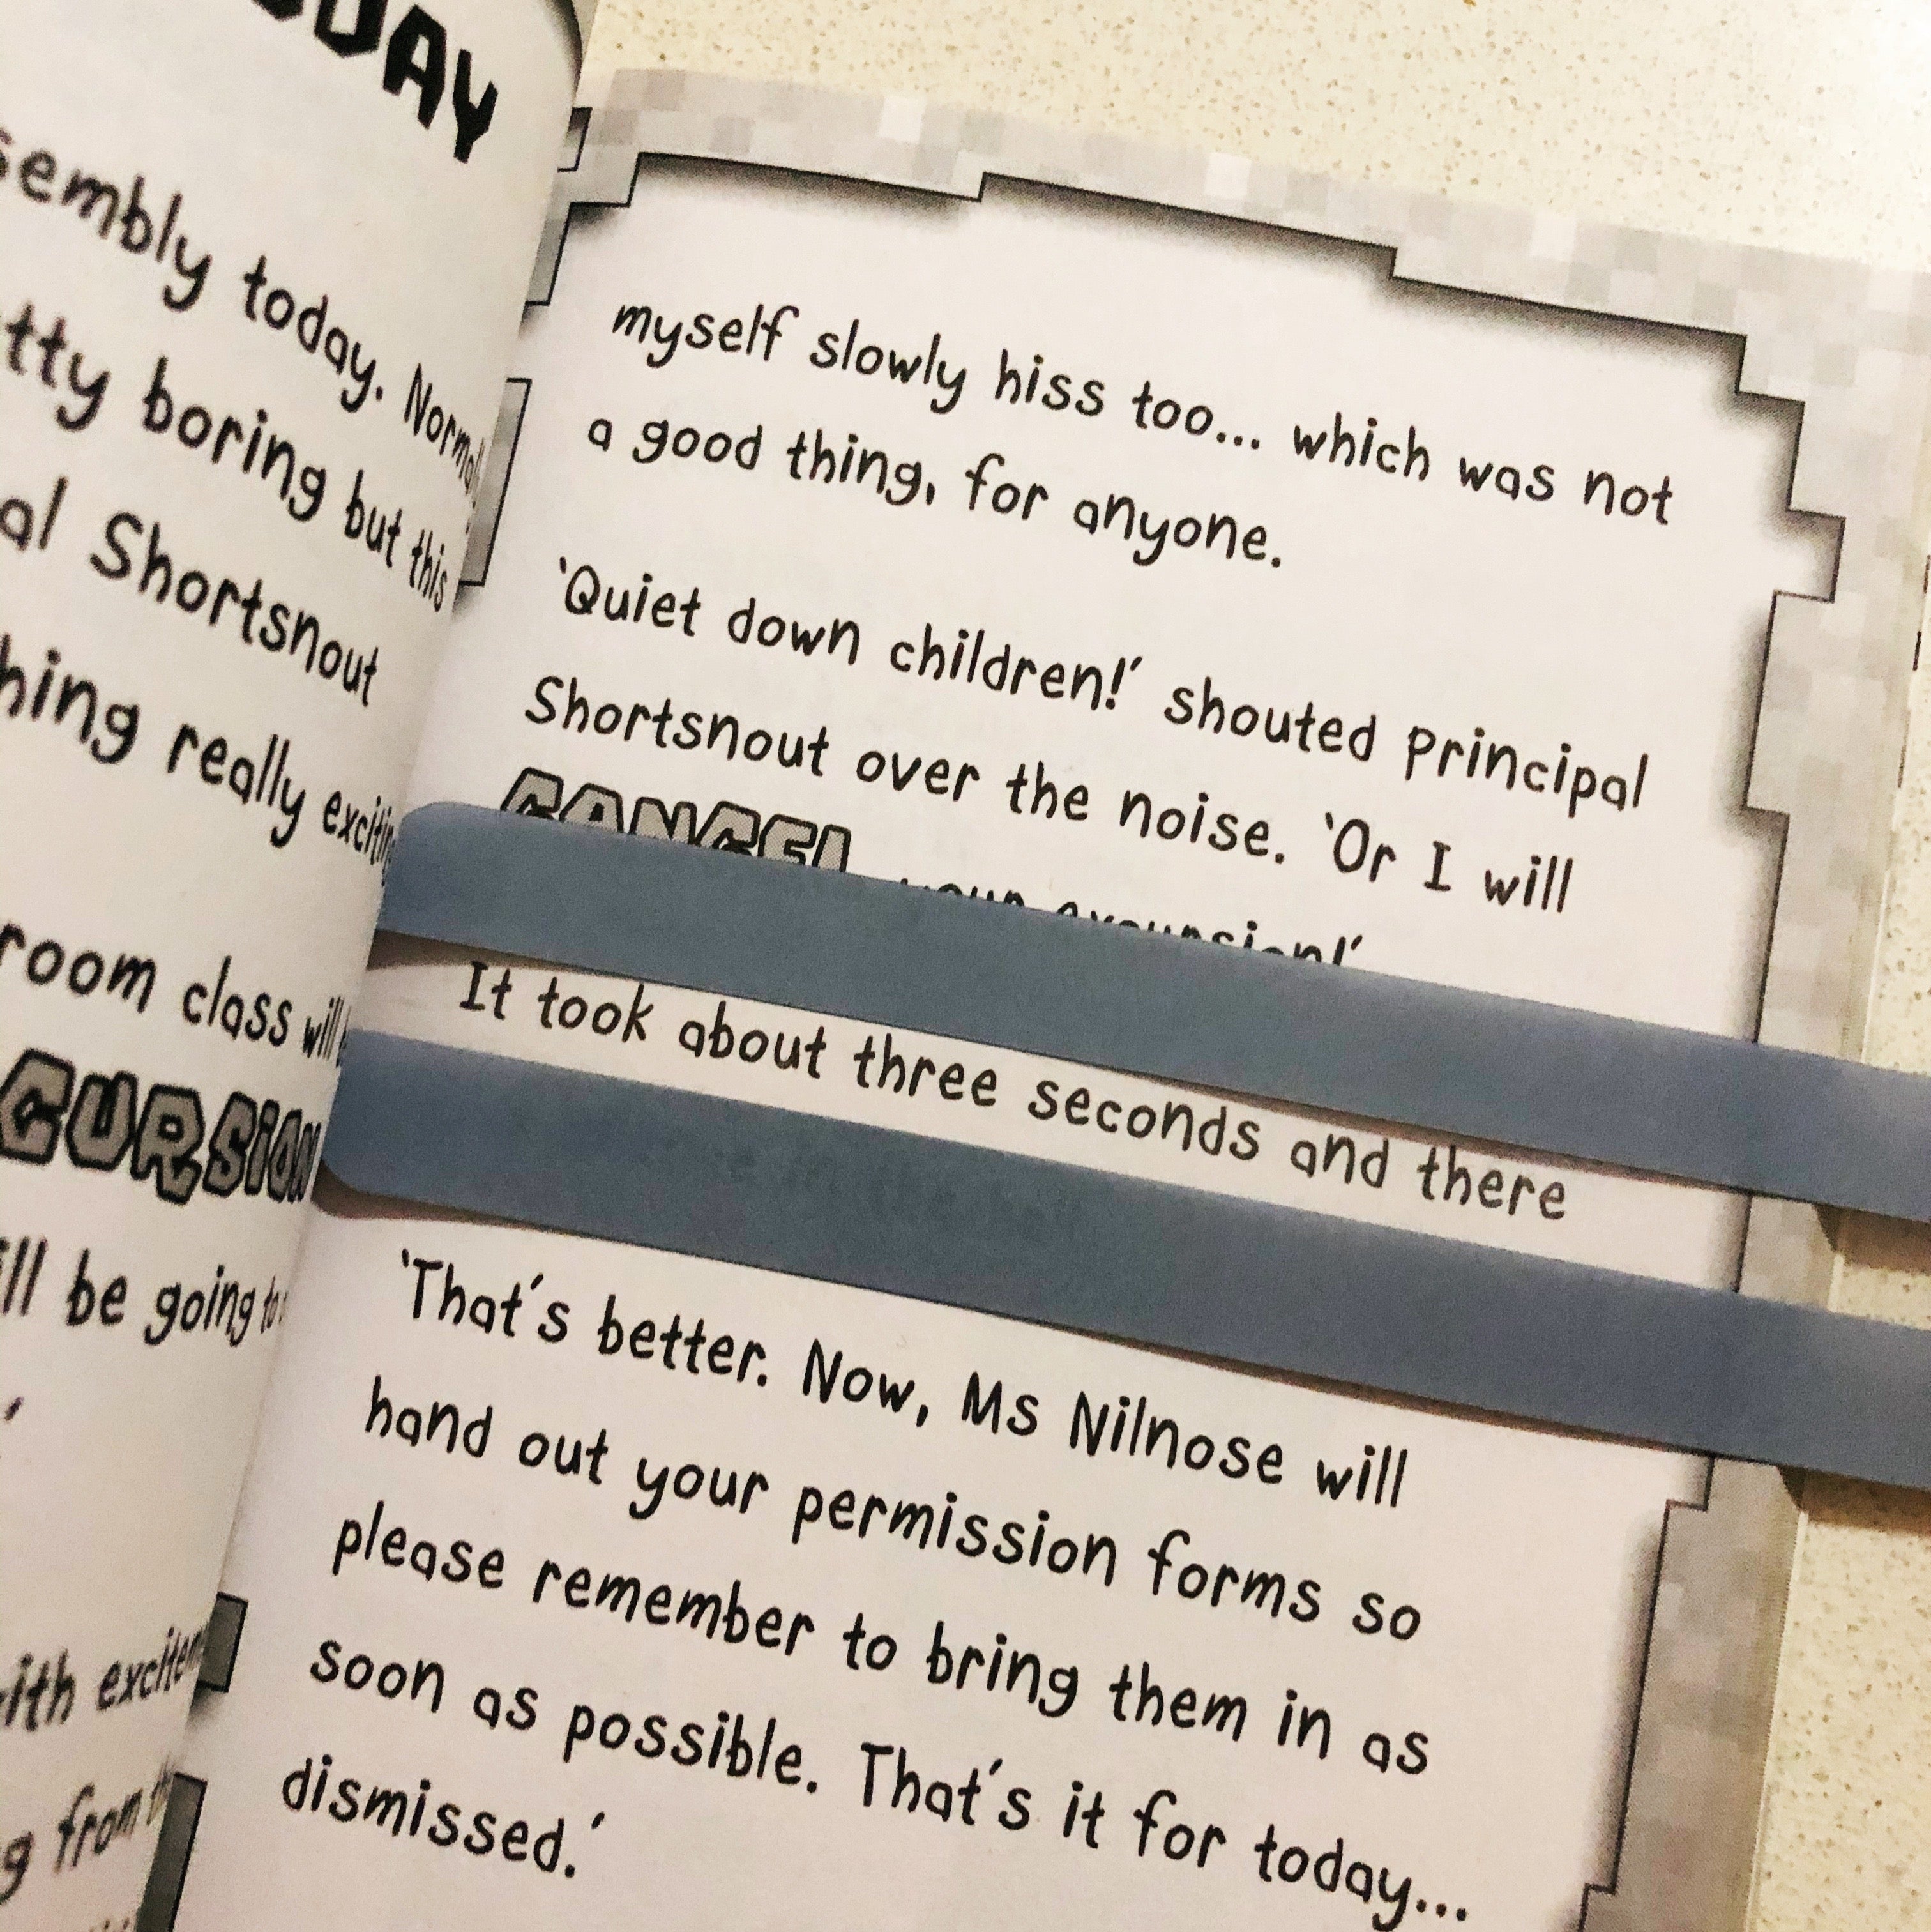 DAY
sembly today. Normally
tty boring but this
al Shortsnout
hing really exciting
room class will
CURSION
ill be going to
with excitem
g from th
myself slowly hiss too... which was not
a good thing, for anyone.
‘Quiet down children!’ shouted Principal
Shortsnout over the noise. ‘Or I will
CANCEL your excursion!’
It took about three seconds and there
‘That’s better. Now, Ms Nilnose will
hand out your permission forms so
please remember to bring them in as
soon as possible. That’s it for today...
dismissed.’